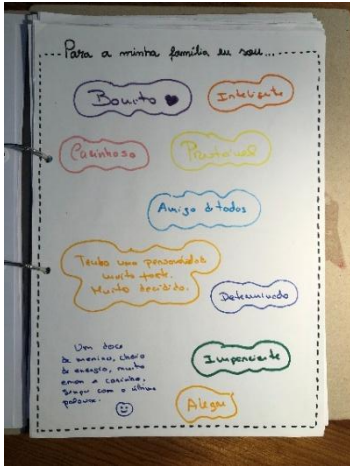 Para a minha família eu sou...
Bonito
Inteligente
Carinhoso
Prestável
Amigo de todos
Tenho uma personalidade
muito forte.
Muito decidido.
Determinado
Impaciente
Um doce
de menino, cheio
de energia, muito
amor e carinho,
sempre com a última
palavra.
Alegre